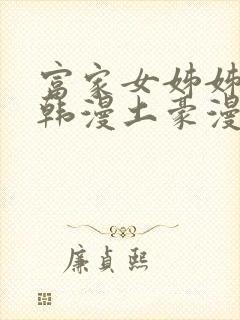 富家女姊姊
韩漫土豪漫
廉贞熙